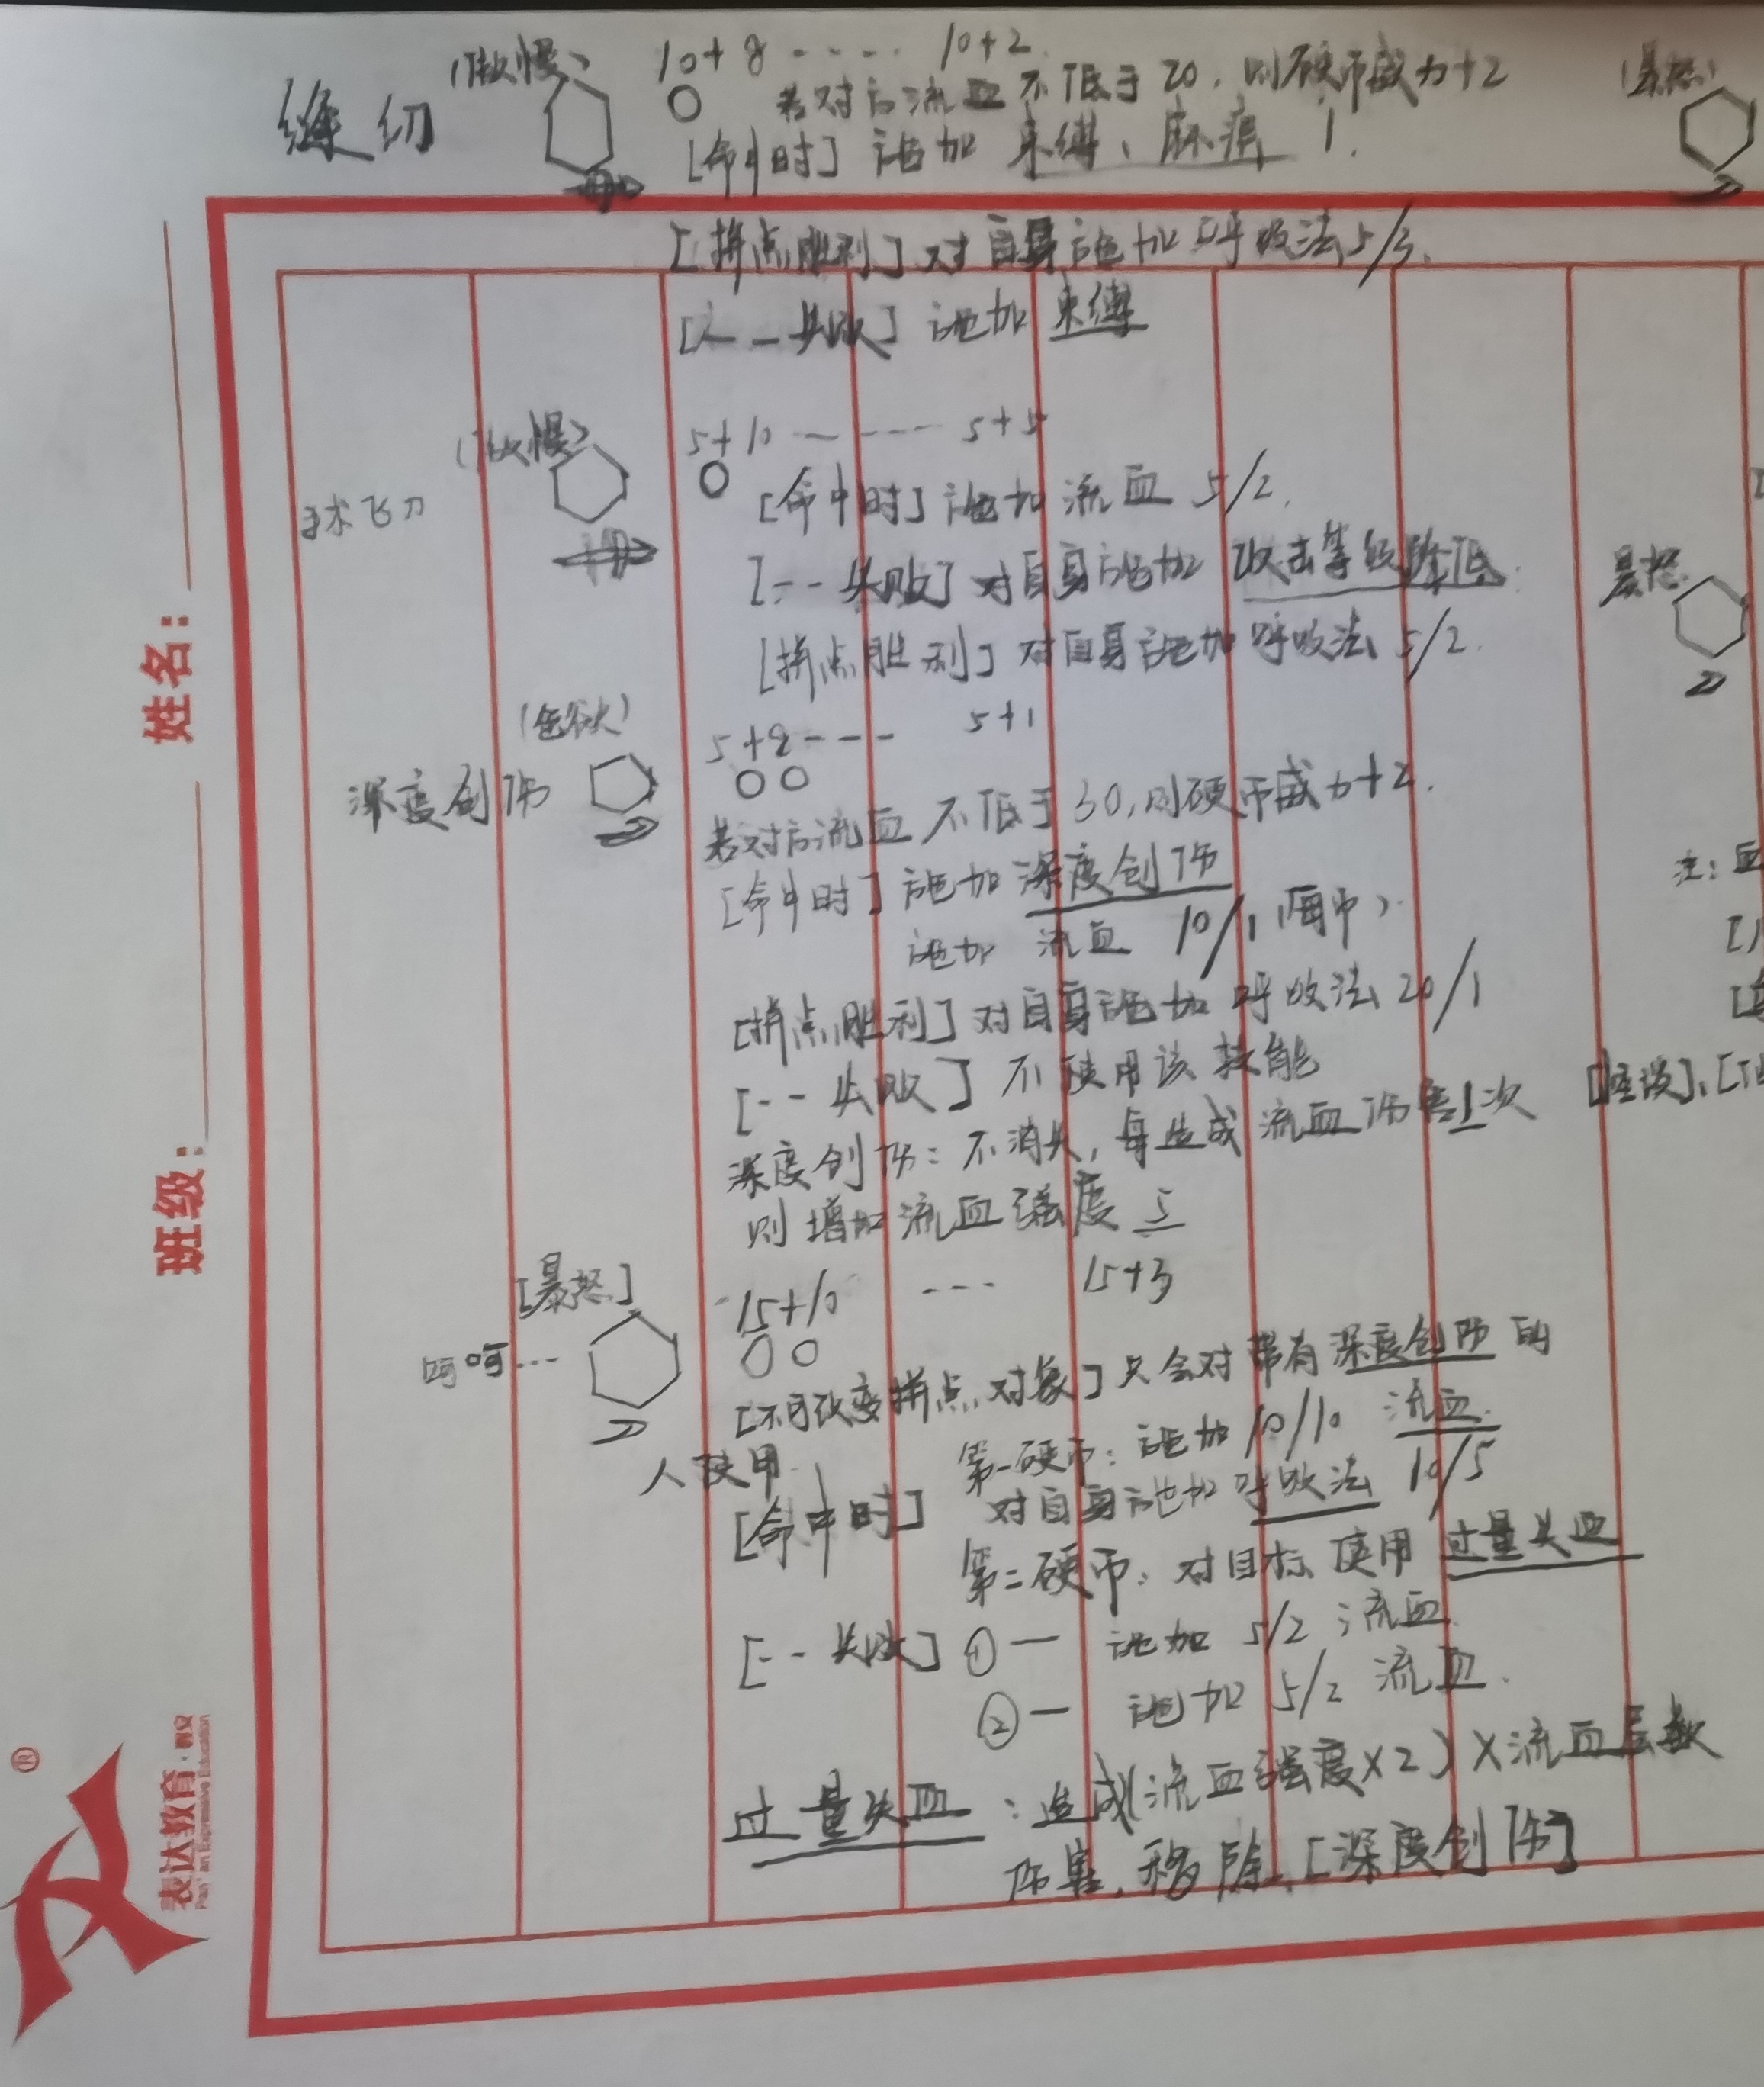 缝纫 (傲慢) 10+8 ---- 10+2
若对方流血不低于20，则硬币威力+2
[命中时] 施加 束缚、麻痹 1.
[拼点胜利] 对自身施加呼吸法5/3.
[-- 失败] 施加 束缚
手术飞刀 (傲慢) 5+10 ------ 5+5
[命中时] 施加 流血 5/2.
[-- 失败] 对自身施加 攻击等级降低.
[拼点胜利] 对自身施加 呼吸法 5/2.
深度创伤 (色欲) 5+8 --- 5+1
若对方流血不低于30,则硬币威力+2.
[命中时] 施加 深度创伤
施加 流血 10/1 (每币).
[拼点胜利] 对自身施加 呼吸法 20/1
[-- 失败] 不使用该技能
深度创伤：不消失，每造成流血伤害1次
则增加流血强度 5
呵呵… [暴怒] 15+10 --- 15+3
[不可改变拼点对象] 只会对带有深度创伤的
人使用
[命中时] 第一硬币：施加 10/10 流血.
对自身施加呼吸法 10/5
第二硬币：对目标使用 过量失血
[-- 失败] ①一 施加 5/2 流血.
②一 施加 5/2 流血.
过量失血：造成(流血强度×2)×流血层数
伤害，移除[深度创伤]
(暴怒)
暴怒
注：血
[怪谈]、[
姓名：
班级：
®
表达教育·教
Play! an Expressive Education